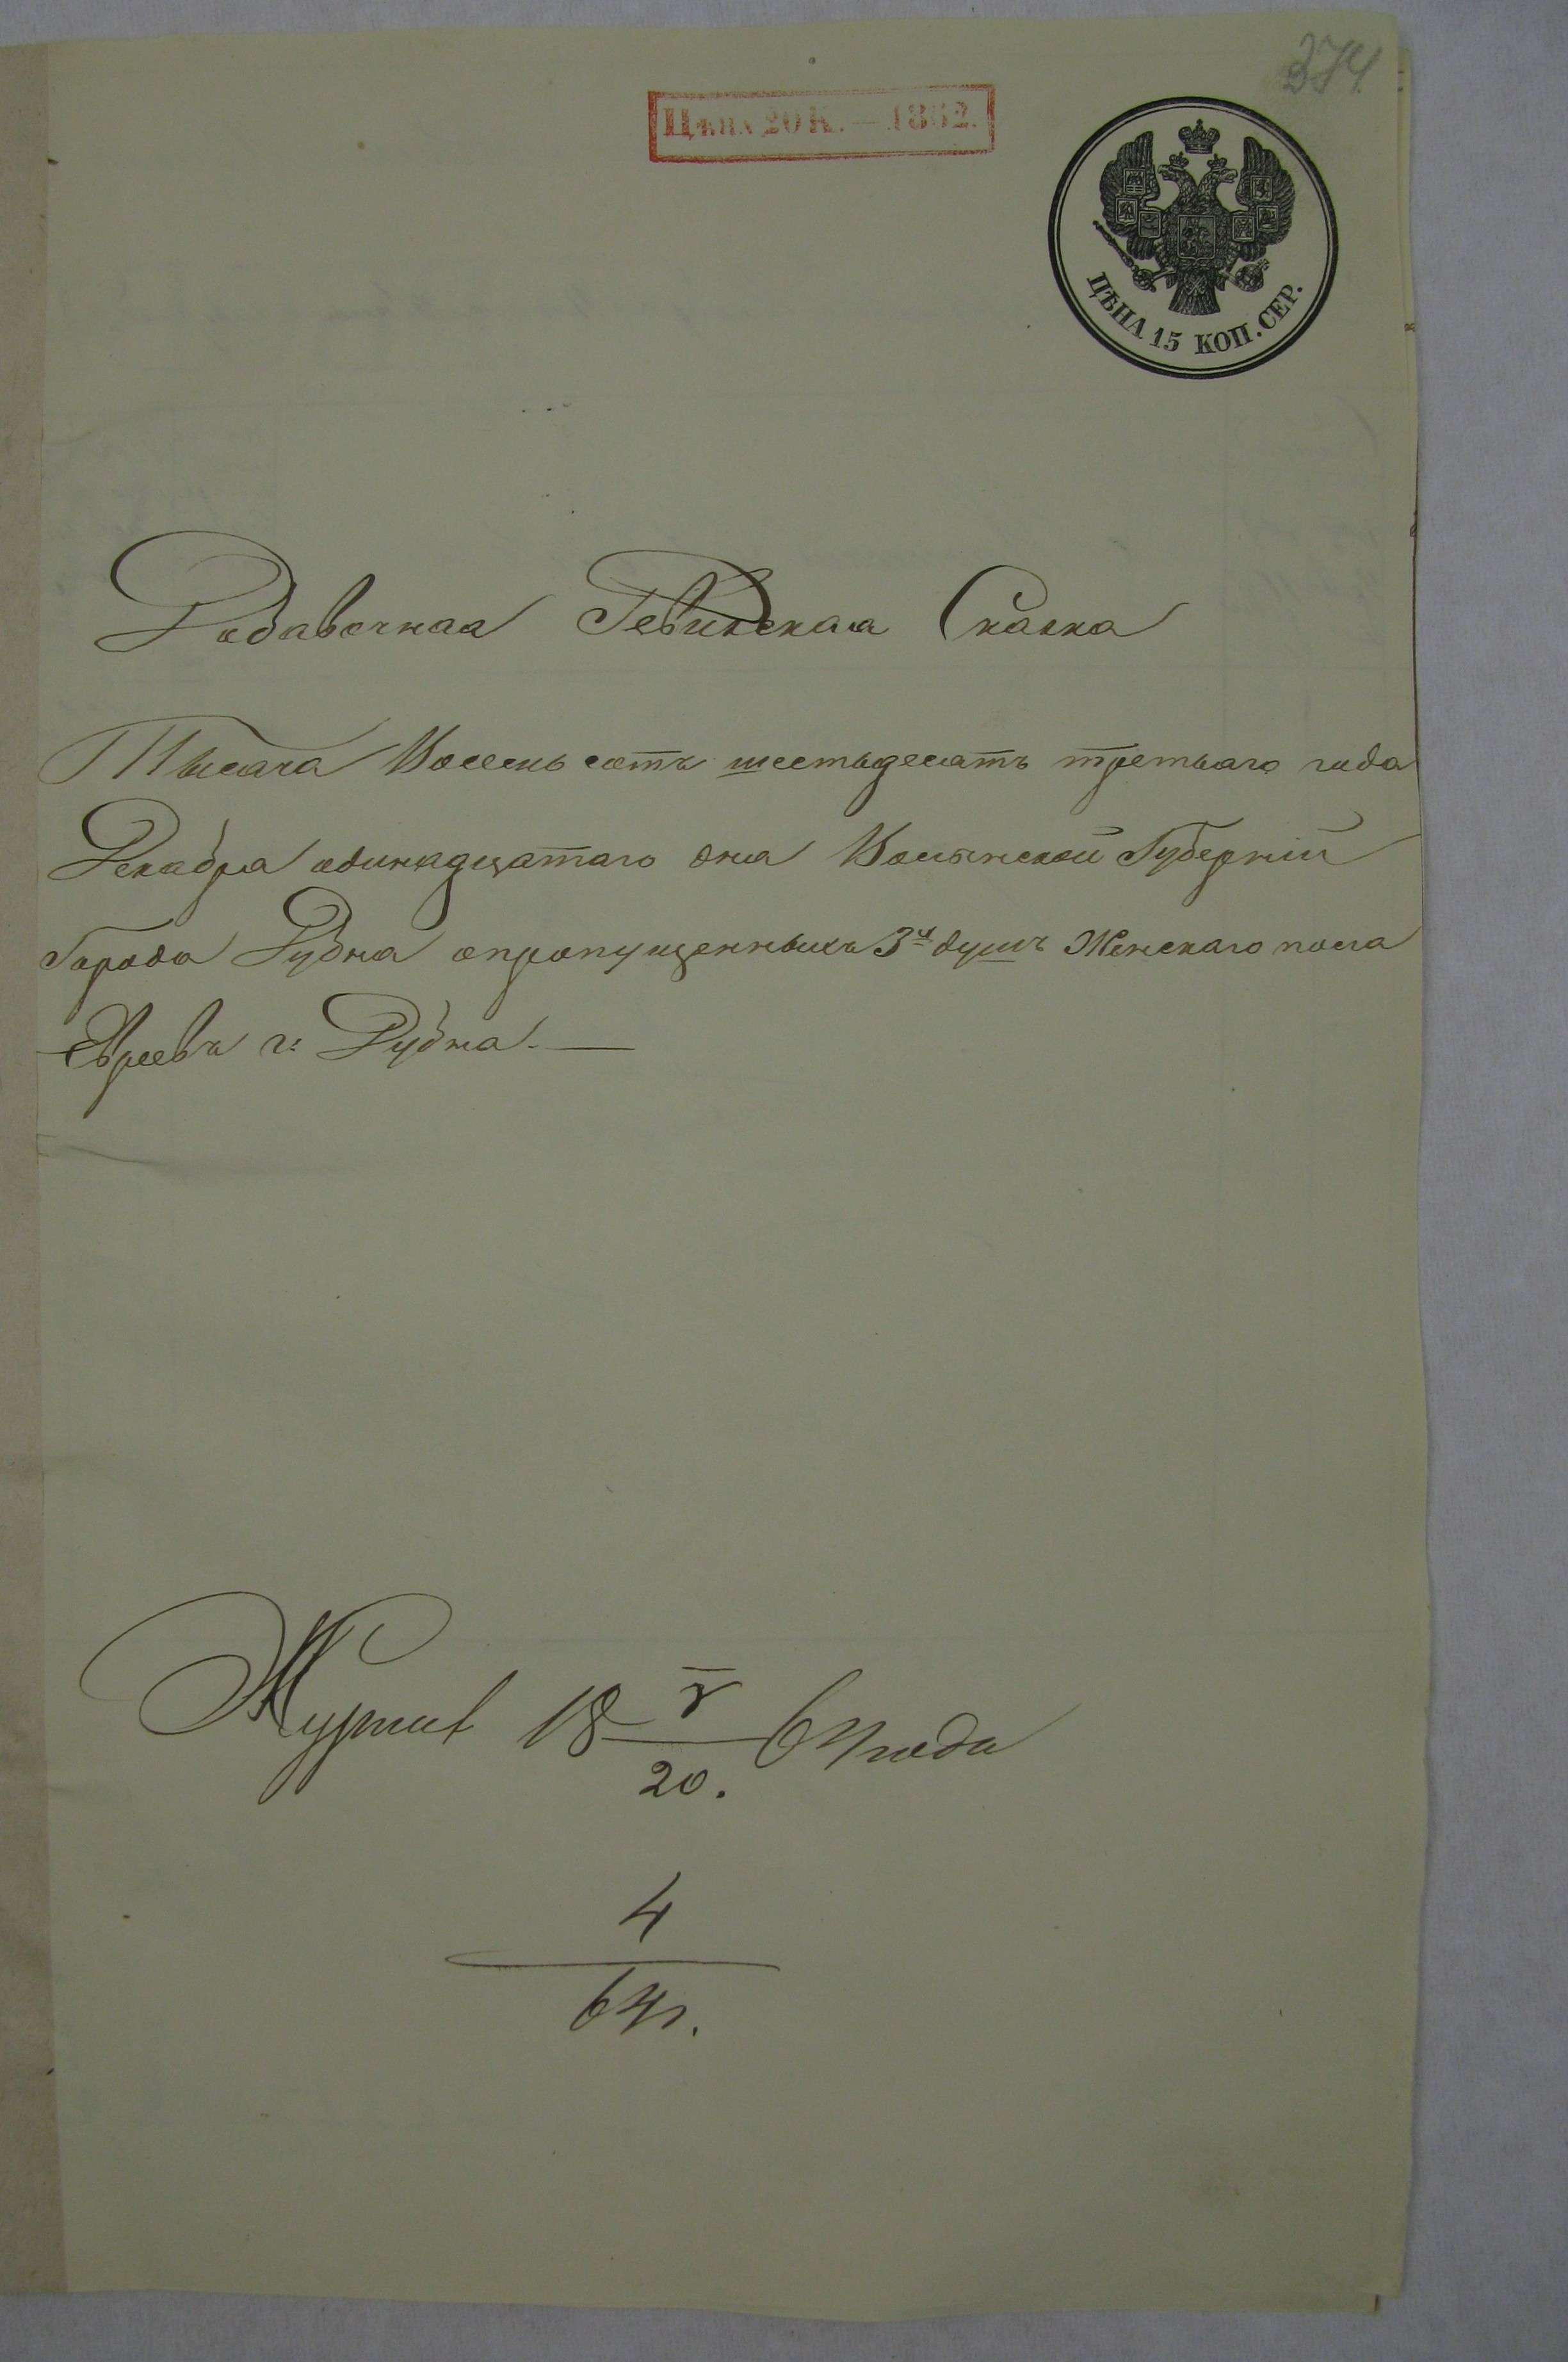 374
Цѣна 20 К. — 1862.
ЦѢНА 15 КОП. СЕР.
Добавочная Ревизская Сказка
Тысяча Восемь сотъ шестьдесятъ третьяго года
Декабря одинадцатаго дня Волынской Губерніи
Города Дубна о пропущенныхъ 3хъ душъ Женскаго пола
Евреевъ г: Дубна. —
18 64 года
20.
4
64 г.